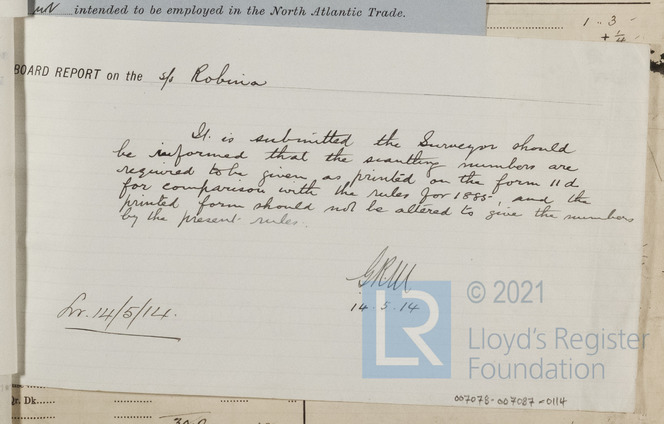 intended to be employed in the North Atlantic Trade.
1 .. 3
+ 1/4
BOARD REPORT on the s/s Robina
It is submitted the Surveyor should
be informed that the scantling numbers are
required to be given as printed on the form 11d
for comparison with the rules for 1885, and the
printed form should not be altered to give the numbers
by the present rules.
GRM
14.5.14
Lr. 14/5/14.
LR
© 2021
Lloyd's Register
Foundation
007078-007087-0114
Dk.